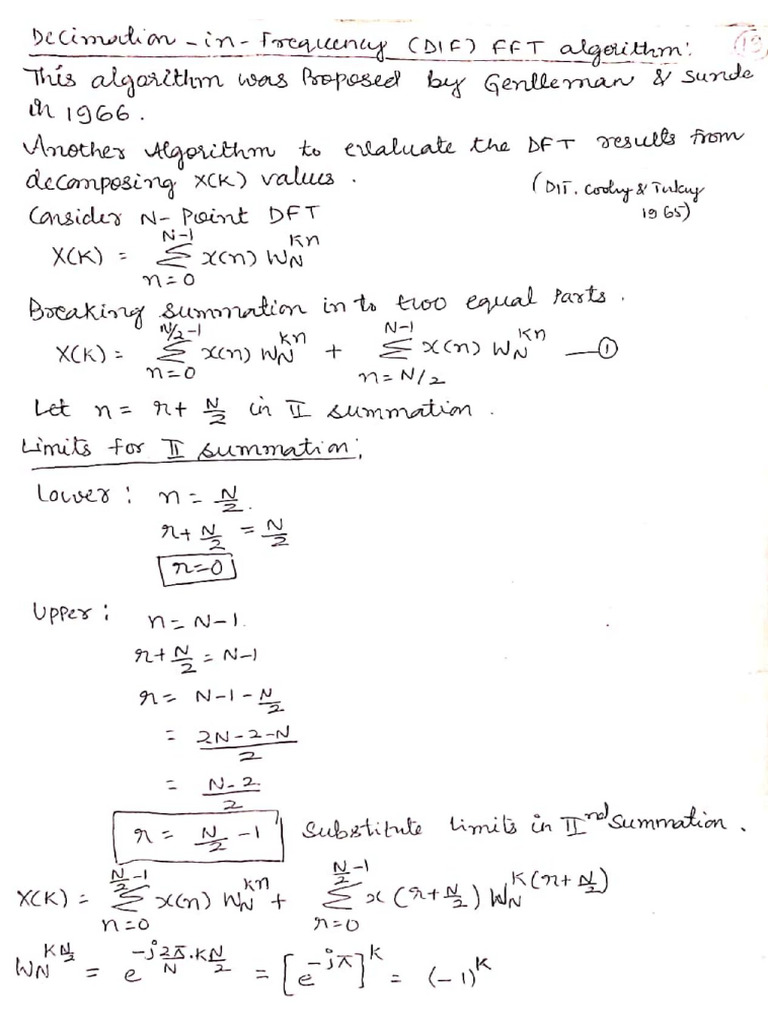 Decimation-in-Frequency (DIF) FFT algorithm: 19
This algorithm was Proposed by Gentleman & Sunde
in 1966.
Another Algorithm to evaluate the DFT results from
decomposing X(K) values.
(DIT. Cooly & Tukay
1965)
Consider N-Point DFT
X(K) = Σ_{n=0}^{N-1} x(n) W_N^{Kn}
Breaking summation in to two equal parts.
X(K) = Σ_{n=0}^{N/2-1} x(n) W_N^{kn} + Σ_{n=N/2}^{N-1} x(n) W_N^{kn} —①
Let n = r + N/2 in II summation.
Limits for II summation:
Lower: n = N/2.
r + N/2 = N/2
r=0
Upper: n = N-1.
r + N/2 = N-1
r = N-1-N/2
= (2N-2-N)/2
= (N-2)/2
r = N/2 - 1 Substitute limits in IInd Summation.
X(K) = Σ_{n=0}^{N/2-1} x(n) W_N^{kn} + Σ_{r=0}^{N/2-1} x(r+N/2) W_N^{K(r+N/2)}
W_N^{KN/2} = e^{-j2π/N.KN/2} = [e^{-jπ}]^k = (-1)^k